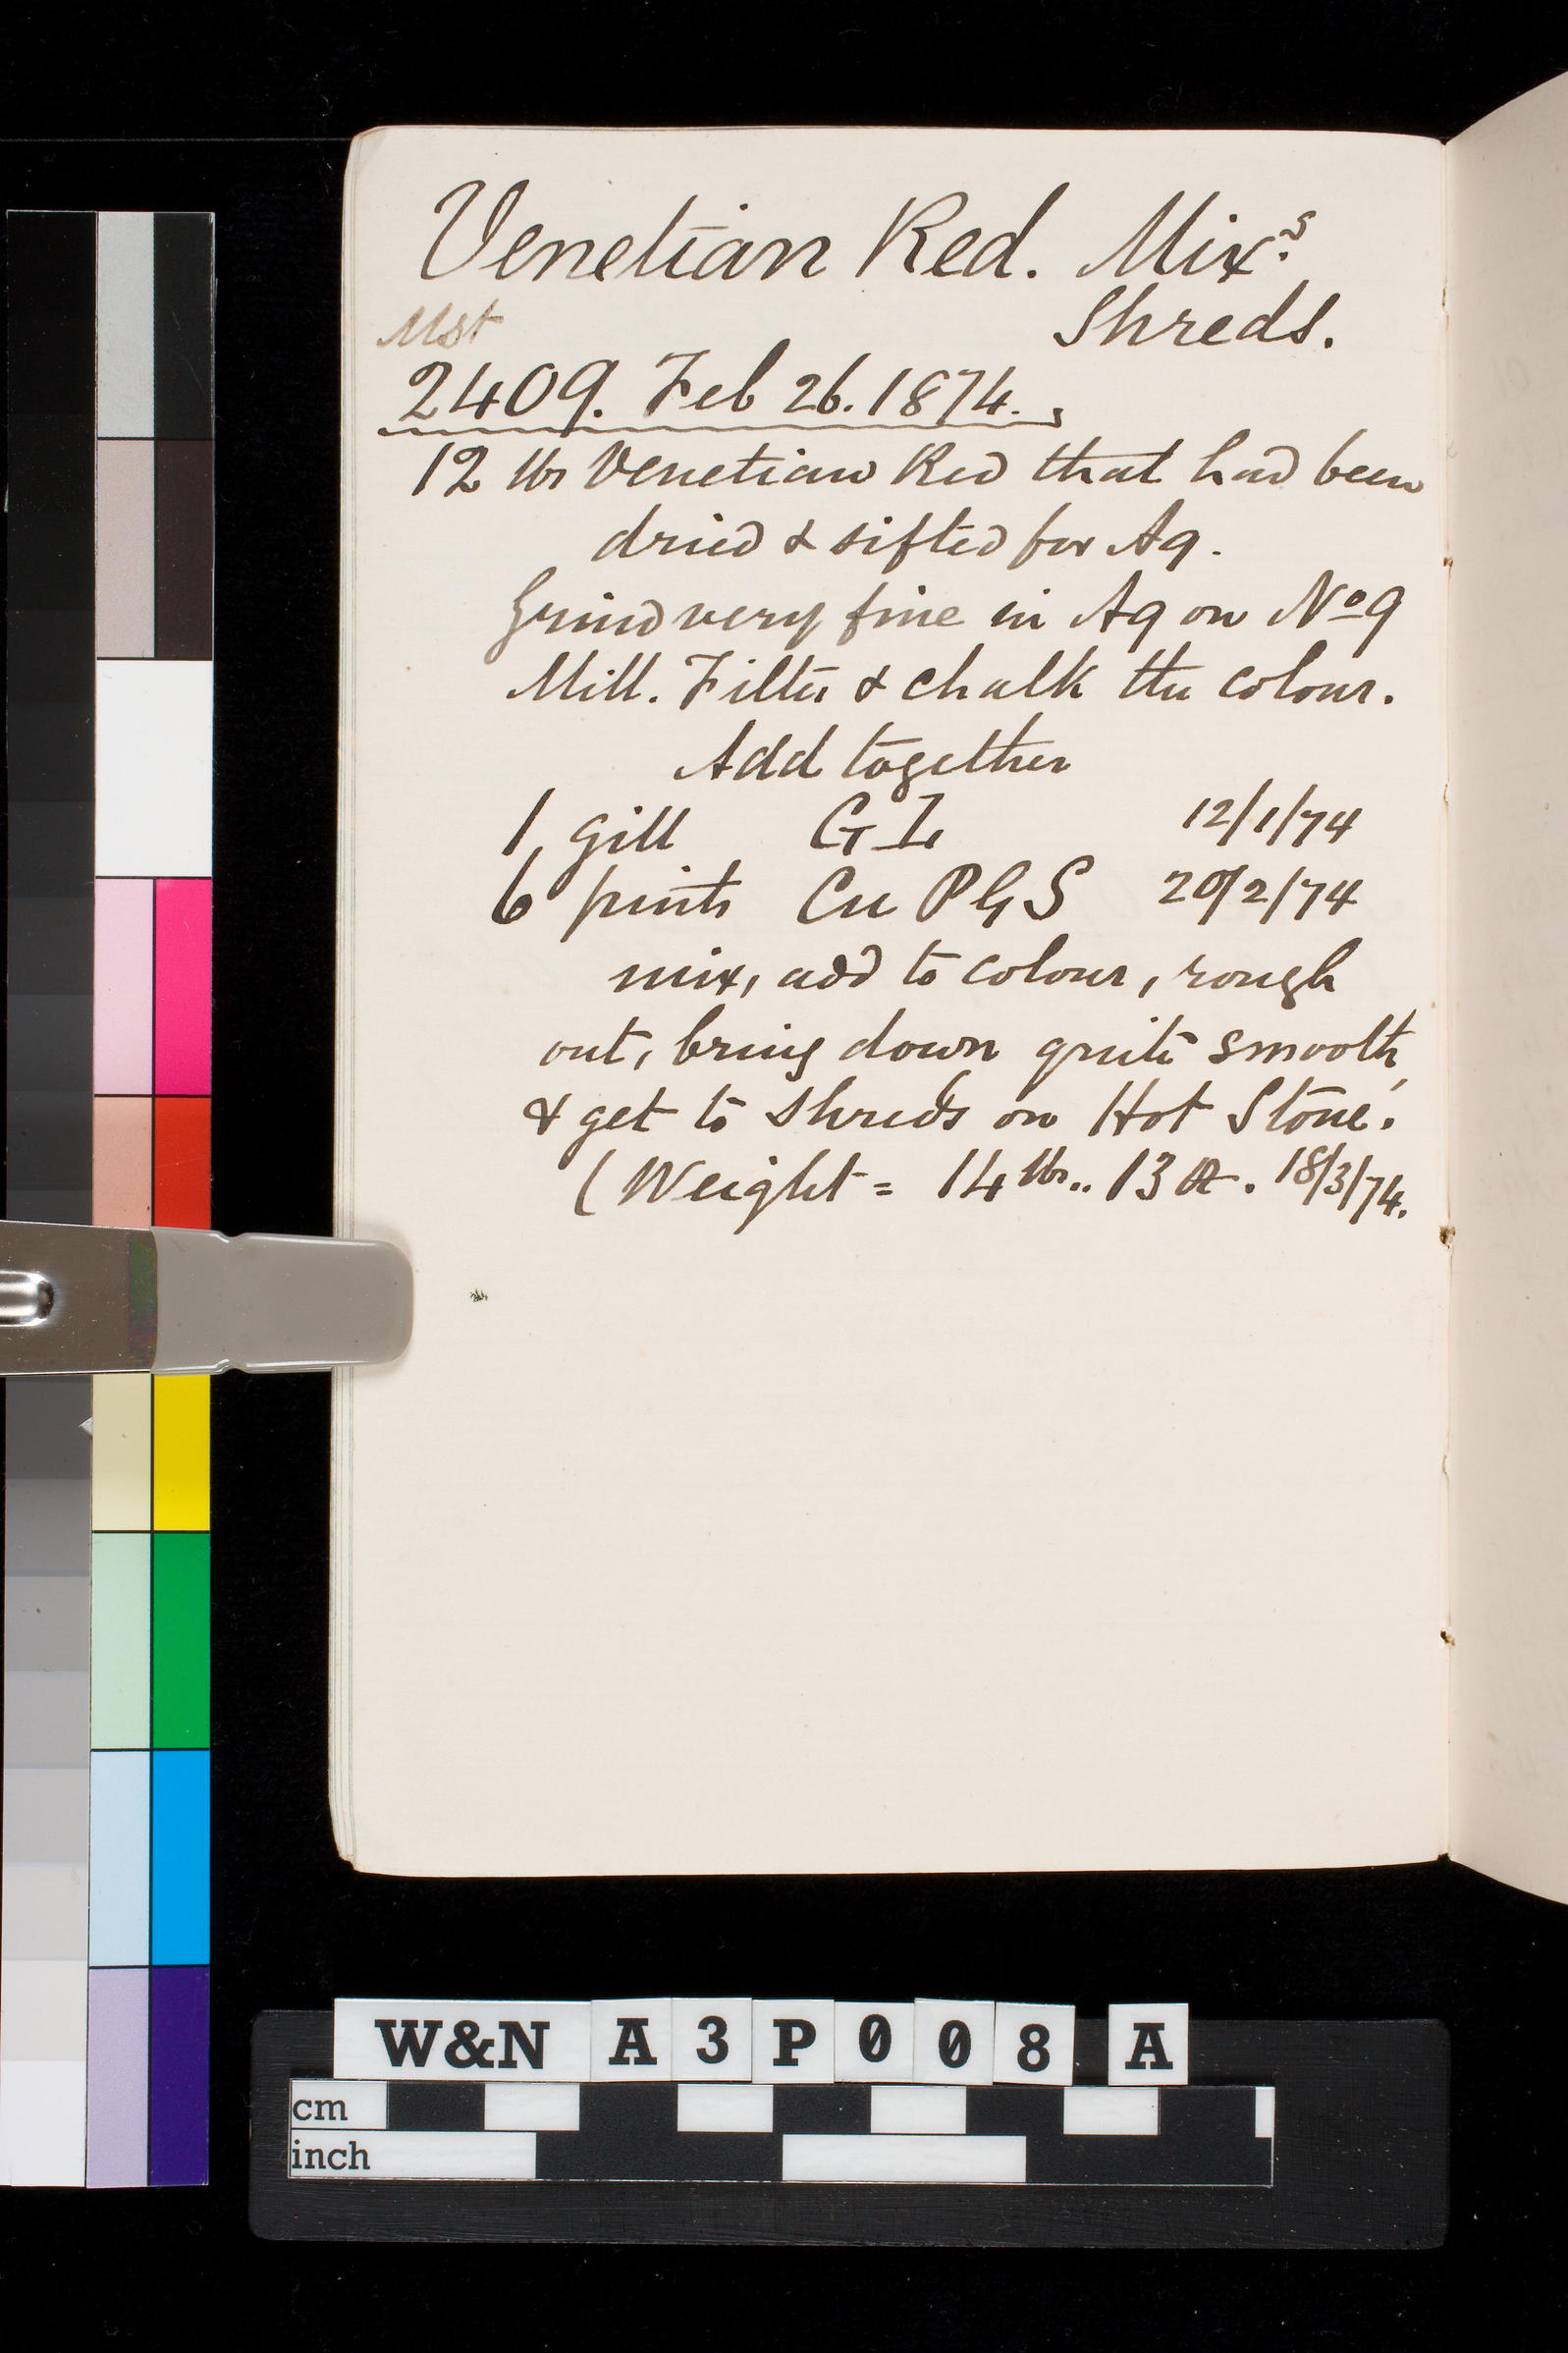 Venetian Red. Mixs.
Shreds.
Mst
2409. Feb 26. 1874.
12 lbs Venetian Red that had been
dried & sifted for Aq.
Grind very fine in Aq on No 9
Mill. Filter & chalk the colour.
Add together
1 gill G I 12/1/74
6 pints Cu P G S 20/2/74
mix, add to colour, rough
out, bring down quite smooth,
& get to shreds on Hot Stone.
(Weight = 14 lbs.. 13 oz. 18/3/74.
W&N A3P008 A
cm
inch